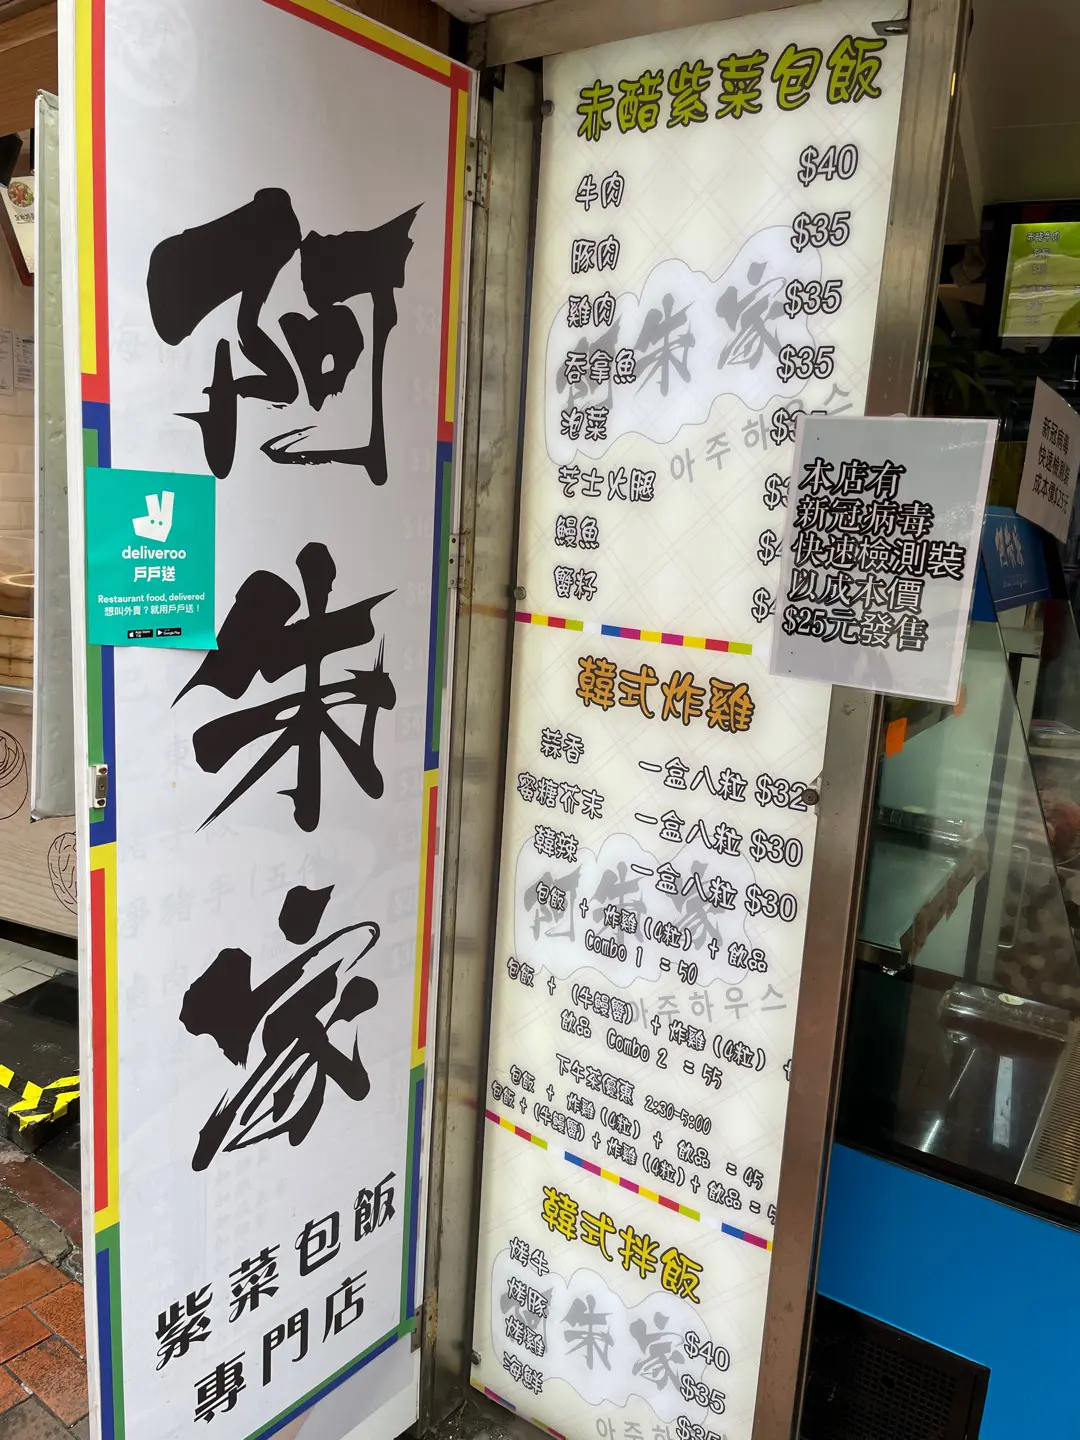 阿朱家
紫菜包飯
專門店
deliveroo
戶戶送
Restaurant food, delivered
想叫外賣？就用戶戶送！
App Store
Google Play
赤醋紫菜包飯
牛肉 $40
豚肉 $35
雞肉 $35
吞拿魚 $35
泡菜
芝士火腿
鰻魚
蟹籽
阿朱家
아주하우스
本店有
新冠病毒
快速檢測裝
以成本價
$25元發售
韓式炸雞
蒜香 一盒八粒 $32
蜜糖芥末 一盒八粒 $30
韓辣 一盒八粒 $30
包飯 + 炸雞 (4粒) + 飲品
Combo 1 = 50
包飯 + (牛鰻蟹) + 炸雞 (4粒) +
飲品 Combo 2 = 55
阿朱家
아주하우스
下午茶優惠 2:30-5:00
包飯 + 炸雞 (4粒) + 飲品 = 45
包飯 + (牛鰻蟹) + 炸雞 (4粒) + 飲品 =
韓式拌飯
烤牛 $40
烤豚 $35
烤雞 $35
海鮮
阿朱家
아주하우스
新冠病毒
快速檢測裝
成本價$25元